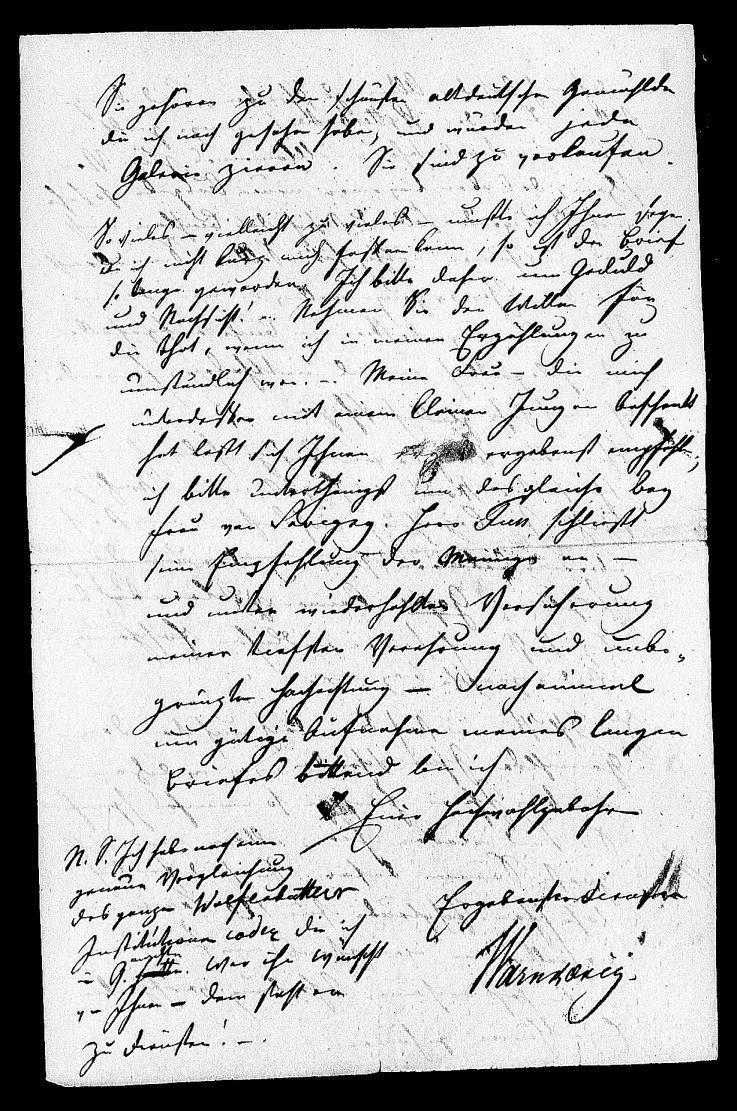 Sie gehören zu den schönsten altdeutschen Gemählden
die ich noch gesehen habe, und würden jede
Galerie zieren. Sie sind zu verkaufen.
So vieles – vielleicht zu vieles – mußte ich Ihnen sagen.
Da ich nicht kurz mich fassen kann, so ist der Brief
so lange geworden. Ich bitte daher um Geduld
und Nachsicht! – Nehmen Sie den Willen für
die That, wenn ich in meinen Erzählungen zu
umständlich war. – Meine Frau – die mich
unterdessen mit einem kleinen Jungen beschenkt
hat läßt sich Ihnen ergebenst empfehlen,
ich bitte unterthänigst um desgleichen bey
Frau von Savigny. Herr schließt
seine Empfehlung der Meinigen an, –
und unter wiederholter Versicherung
meiner tiefsten Verehrung und unbe-
gränzten Hochachtung – noch einmal
um gütige Aufnahme meines langen
Briefes bittend bin ich
Euer Hochwohlgebohren
Ergebenster Diener
Warnkönig.
N. S. Ich habe noch eine
genaue Vergleichung
des ganzen Wolfenbüttler
Institutionen codex die ich
in G. Wer ihn wünscht
Ihnen – dem steht er
zu Diensten! –.